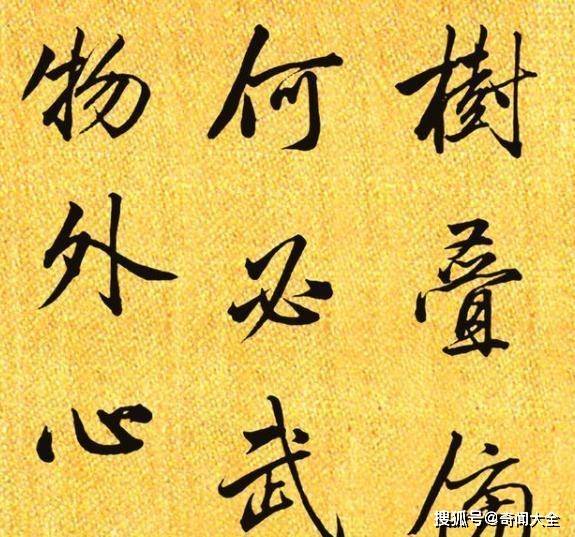 樹疊
何必武
物外心
搜狐号@奇闻大全